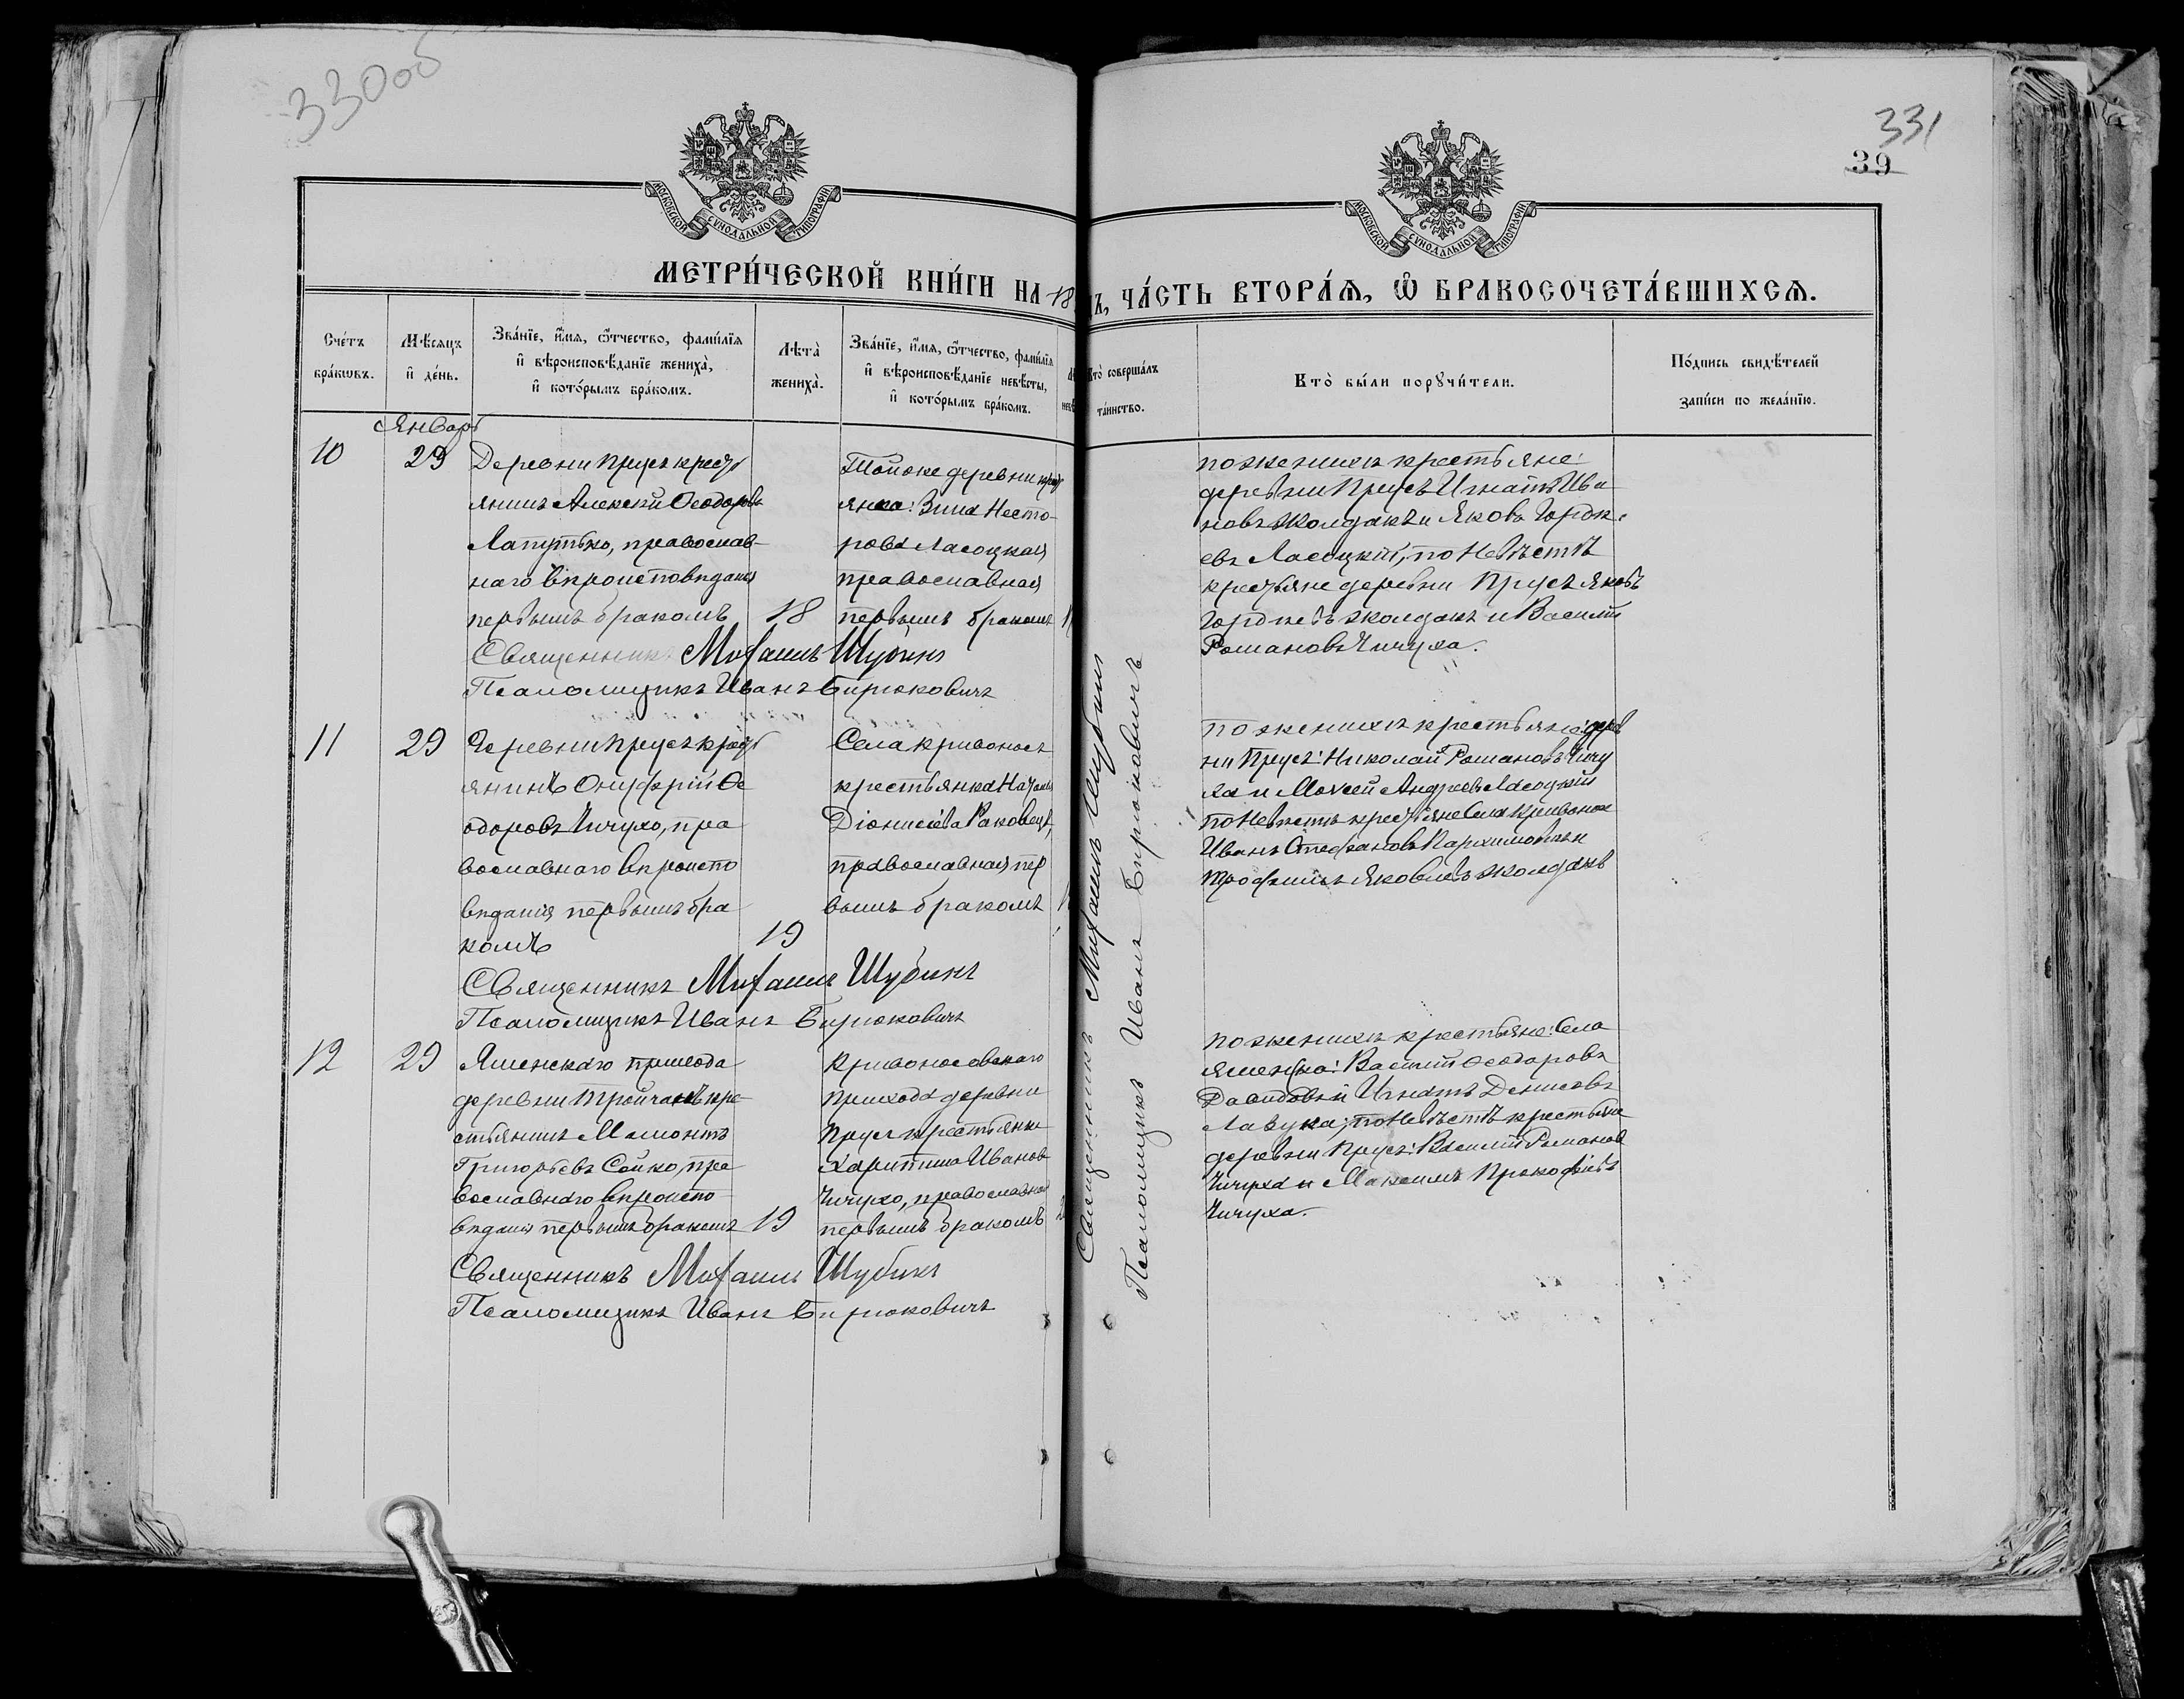 330об
331
39
МОСКОВСКОЙ СѴНОДАЛЬНОЙ ТИПОГРАФІИ
МОСКОВСКОЙ СѴНОДАЛЬНОЙ ТИПОГРАФІИ
МЕТРИ́ЧЕСКОЙ КНИ́ГИ НА 18
ЧА́СТЬ ВТОРА́Ѧ, Ѽ БРАКОСОЧЕТА́ВШИХСѦ.
Сче́тъ бра́кѡвъ.
Мѣ́сяцъ и҆ де́нь.
Зва́нїе, и҆́мя, ѻ҆́тчество, фами́лїя
и҆ вѣроисповѣ́данїе жениха̀,
и҆ кото́рымъ бра́комъ.
Лѣта̀ жениха̀.
Зва́нїе, и҆́мя, ѻ҆́тчество, фами́лїя
и҆ вѣроисповѣ́данїе невѣ́сты,
и҆ кото́рымъ бра́комъ.
Кто̀ соверша́лъ
та́инство.
Кто̀ бы́ли порꙋчи́тели.
По́дпись свидѣ́телей
за́писи по жела́нїю.
Январь
10
29
Деревни Прусъ крест
янинъ Алексѣй Ѳеодоровъ
Лапутько, православ-
наго вѣроисповѣданія
первымъ бракомъ
18
Той же деревни крест
янка: Зина Несто-
рова Ласоцкая
православная
первымъ бракомъ
по женихѣ крестьяне:
деревни Прусъ Игнатъ Ива
новъ Жолдакъ и Яковъ Горде
евъ Ласоцкій, по невѣстѣ
крестьяне деревни Прусъ Яковъ
Гордѣевъ Жолдакъ и Василій
Романовъ Чичуха.
Священникъ Михаилъ Шубинъ
Псаломщикъ Иванъ Бирюковичъ
11
29
Деревни Прусъ крест
янинъ Онуфрій Ѳе
одоровъ Чичухо, пра
вославнаго вѣроиспо
вѣданія первымъ бра
комъ
19
Села Кривоносъ
крестьянка
Діонисіева Раковецъ,
православная пер
вымъ бракомъ
по женихѣ крестьяне: дерев
ни Прусъ: Николай Романовъ Чичу
ха и Моисей Андреевъ Ласоцкій
по невѣстѣ крестьяне Села Кривоносъ
Иванъ Стефановъ и
Трофимъ Яковлевъ Жолдакъ
Священникъ Михаилъ Шубинъ
Псаломщикъ Иванъ Бирюковичъ
12
29
Яменскаго прихода
деревни Тройчанъ кре-
стьянинъ Мамонтъ
Григорьевъ Сойко, пра
вославнаго вѣроиспо
вѣданія первымъ бракомъ
19
Кривоносовскаго
прихода деревни
Прусъ крестьянка
Харитина Иванов
Чичухо, православная
первымъ бракомъ
по женихѣ крестьяне: Села
Василій Ѳеодоровъ
и Игнатъ Денисовъ
Лавука; по невѣстѣ крестьяне
деревни Прусъ: Василій Романов
Чичуха и Максимъ Прокофіевъ
Чичуха.
Священникъ Михаилъ Шубинъ
Псаломщикъ Иванъ Бирюковичъ
Священникъ Михаилъ Шубинъ
Псаломщикъ Иванъ Бирюковичъ